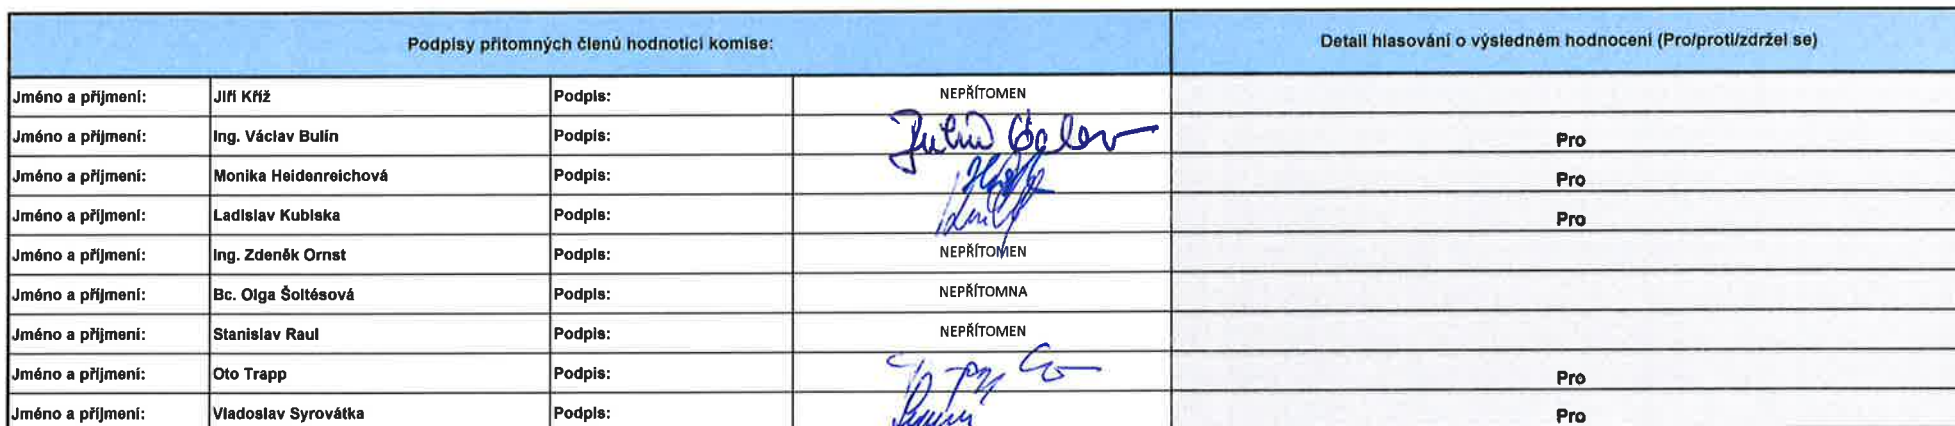 Podpisy přítomných členů hodnotící komise: Detail hlasování o výsledném hodnocení (Pro/proti/zdržel se)
Jméno a příjmení: Jiří Kříž Podpis: NEPŘÍTOMEN
Jméno a příjmení: Ing. Václav Bulín Podpis: Pro
Jméno a příjmení: Monika Heidenreichová Podpis: Pro
Jméno a příjmení: Ladislav Kubiska Podpis: Pro
Jméno a příjmení: Ing. Zdeněk Ornst Podpis: NEPŘÍTOMEN
Jméno a příjmení: Bc. Olga Šoltésová Podpis: NEPŘÍTOMNA
Jméno a příjmení: Stanislav Raul Podpis: NEPŘÍTOMEN
Jméno a příjmení: Oto Trapp Podpis: Pro
Jméno a příjmení: Vladoslav Syrovátka Podpis: Pro